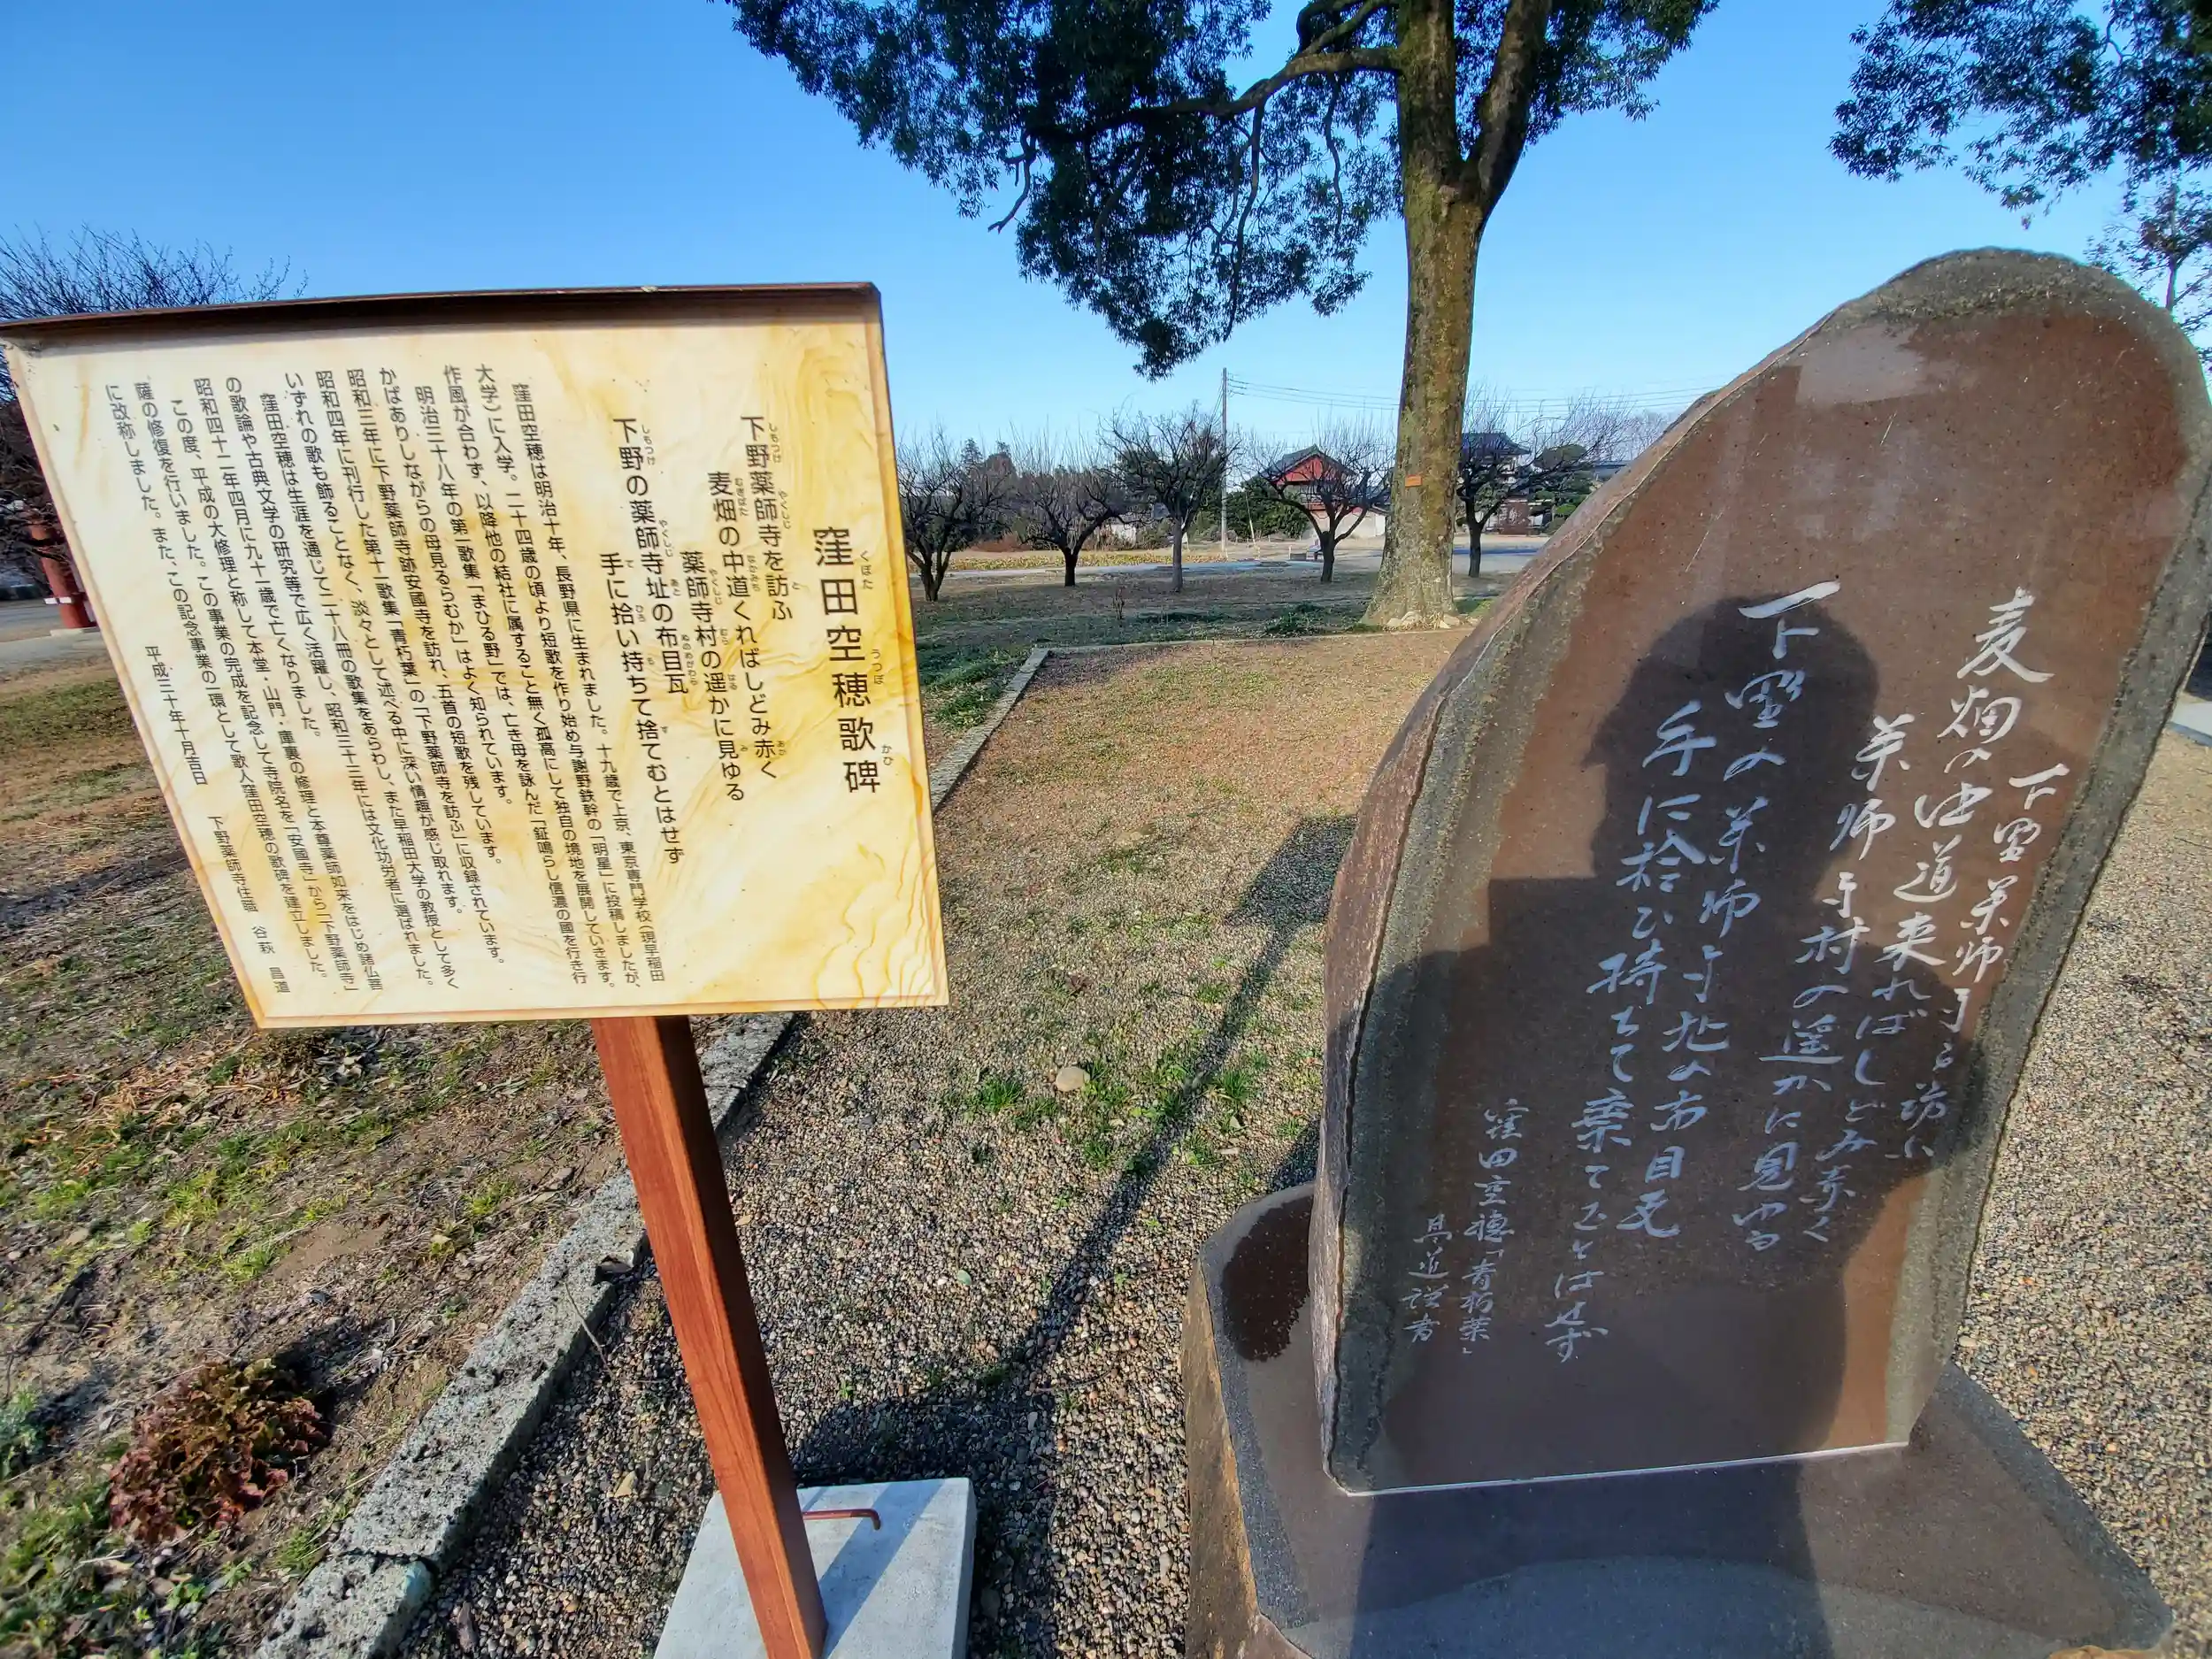 窪田空穂歌碑
くぼた うつぼ かひ
下野薬師寺を訪ふ
しもつけ やくしじ と
麦畑の中道くればしどみ赤く
むぎばた なかみち あか
薬師寺村の遥かに見ゆる
やくしじ むら はる み
下野の薬師寺址の布目瓦
しもつけ やくしじ あと ぬのめがわら
手に拾い持ちて捨てむとはせず
て ひろ も す
窪田空穂は明治十年、長野県に生まれました。十九歳で上京、東京専門学校(現早稲田
大学)に入学。二十四歳の頃より短歌を作り始め与謝野鉄幹の「明星」に投稿しましたが、
作風が合わず、以降他の結社に属すること無く孤高にして独自の境地を展開していきます。
明治三十八年の第一歌集「まひる野」では、亡き母を詠んだ「鉦鳴らし信濃の國を行き行
かばありしながらの母見るらむか」はよく知られています。
昭和三年に下野薬師寺跡安國寺を訪れ、五首の短歌を残しています。
昭和四年に刊行した第十一歌集「青朽葉」の「下野薬師寺を訪ふ」に収録されています。
いずれの歌も飾ることなく、淡々として述べる中に深い情趣が感じ取れます。
窪田空穂は生涯を通じて二十八冊の歌集をあらわし、また早稲田大学の教授として多く
の歌論や古典文学の研究等で広く活躍し、昭和三十三年には文化功労者に選ばれました。
昭和四十二年四月に九十一歳で亡くなりました。
この度、平成の大修理と称して本堂・山門・庫裏の修理と本尊薬師如来をはじめ諸仏菩
薩の修復を行いました。この事業の完成を記念して寺院名を「安國寺」から「下野薬師寺」
に改称しました。また、この記念事業の一環として歌人窪田空穂の歌碑を建立しました。
平成三十年十月吉日
下野薬師寺住職 谷萩 昌道
下野薬師寺を訪ふ
麦畑の中道来ればしどみ赤く
薬師寺村の遥かに見ゆる
下野の薬師寺址の布目瓦
手に拾ひ持ちて棄てむとはせず
窪田空穂「青朽葉」
昌道謹書